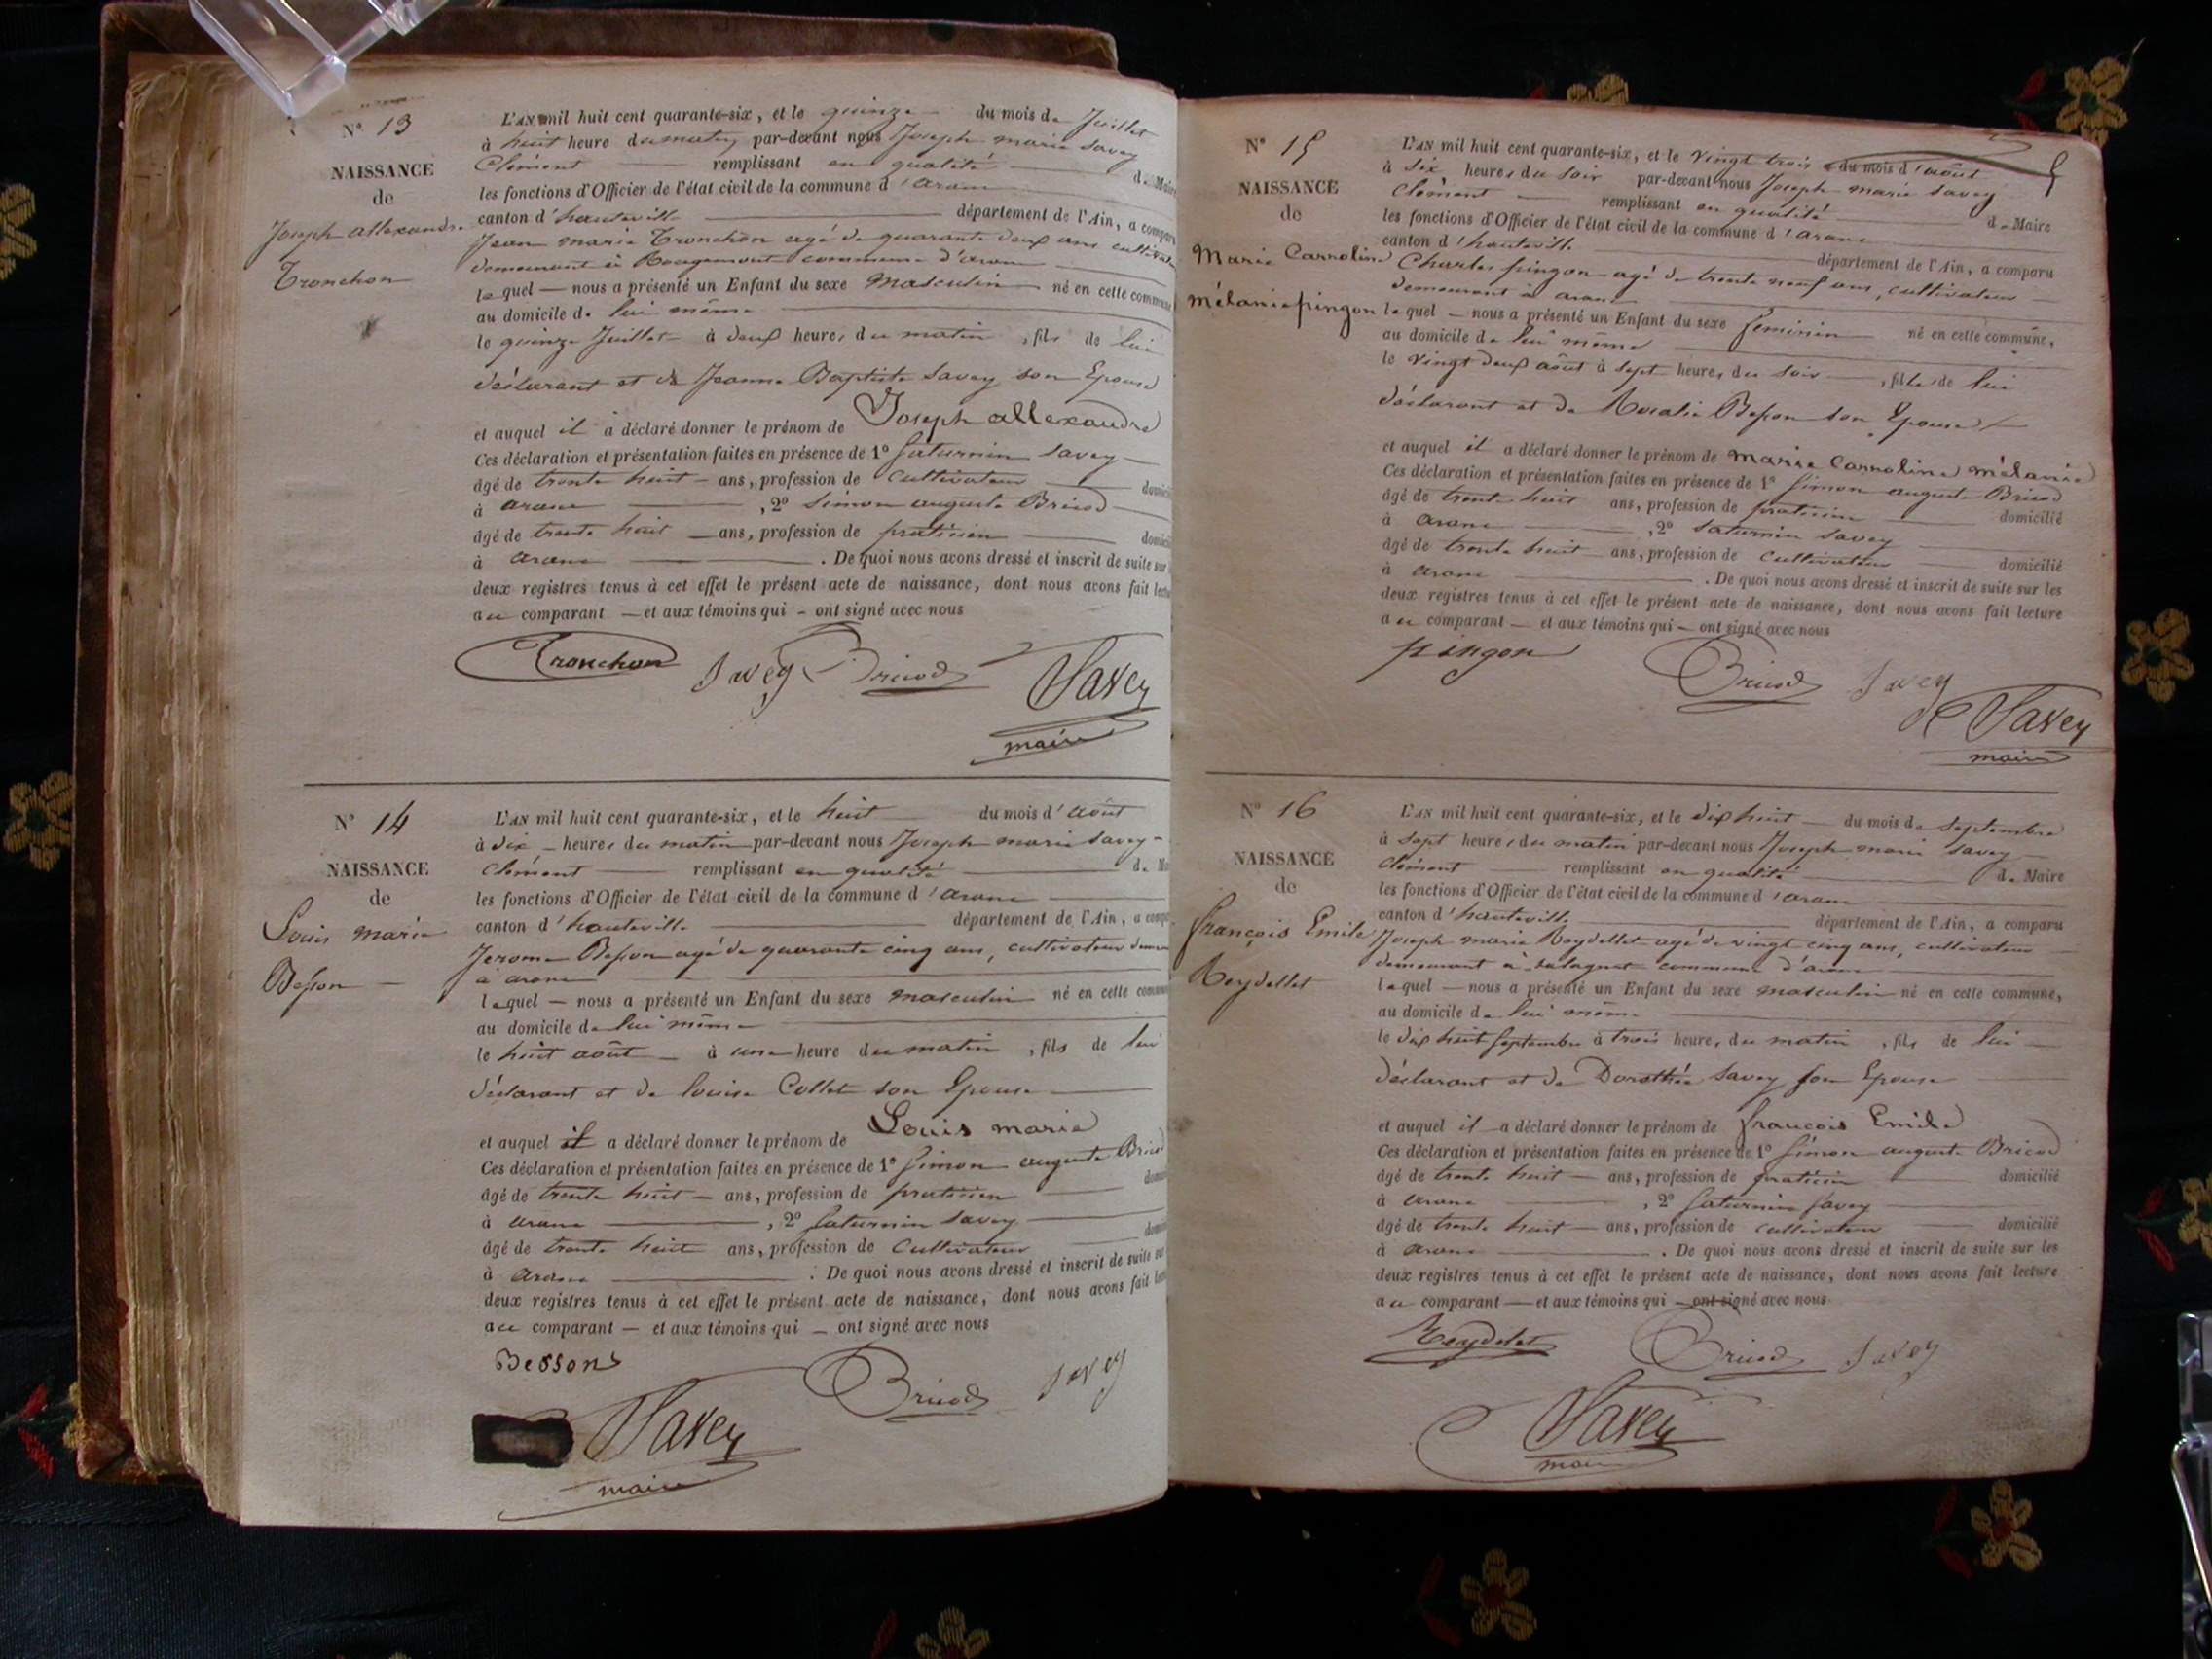 N° 13
NAISSANCE
de
Joseph allexandre
Tronchon
L'AN mil huit cent quarante-six, et le quinze du mois de Juillet
à huit heure du matin, par-devant nous Joseph marie Savey
Clément remplissant en qualité de Maire
les fonctions d'Officier de l'état civil de la commune d'aranc
canton d'hauteville département de l'Ain, a comparu
Jean marie Tronchon agé de quarante deux ans cultivateur
demeurant à Rougemont commune d'aranc
lequel nous a présenté un Enfant du sexe Masculin né en cette commune
au domicile de lui même
le quinze Juillet à deux heures du matin, fils de lui
déclarant et de Jeanne Baptiste Savey son Epouse
et auquel il a déclaré donner le prénom de Joseph allexandre
Ces déclaration et présentation faites en présence de 1° Saturnin Savey
âgé de trente huit ans, profession de Cultivateur domicilié
à aranc, 2° Simon auguste Bricod
âgé de trente huit ans, profession de praticien domicilié
à aranc. De quoi nous avons dressé et inscrit de suite sur
deux registres tenus à cet effet le présent acte de naissance, dont nous avons fait lecture
au comparant et aux témoins qui ont signé avec nous
Tronchon Savey Bricod Savey
maire
N° 14
NAISSANCE
de
Louis marie
Besson
L'AN mil huit cent quarante-six, et le huit du mois d'août
à dix heures du matin par-devant nous Joseph marie Savey
Clément remplissant en qualité de
les fonctions d'Officier de l'état civil de la commune d'aranc
canton d'hauteville département de l'Ain, a comparu
Jerome Besson agé de quarante cinq ans, cultivateur
à aranc
lequel nous a présenté un Enfant du sexe masculin né en cette commune
au domicile de lui même
le huit août à une heure du matin, fils de lui
déclarant et de louise Collet son Epouse
et auquel il a déclaré donner le prénom de Louis marie
Ces déclaration et présentation faites en présence de 1° Simon auguste Bricod
âgé de trente huit ans, profession de praticien
à aranc, 2° Saturnin Savey
âgé de trente huit ans, profession de Cultivateur
à aranc. De quoi nous avons dressé et inscrit de suite sur
deux registres tenus à cet effet le présent acte de naissance, dont nous avons fait
au comparant et aux témoins qui ont signé avec nous
Besson Bricod Savey
Savey
maire
N° 15
NAISSANCE
de
Marie Carroline
mélanie pingon
5
L'AN mil huit cent quarante-six, et le vingt trois du mois d'août
à six heures du soir par-devant nous Joseph marie Savey
Clément remplissant en qualité de Maire
les fonctions d'Officier de l'état civil de la commune d'aranc
canton d'hauteville département de l'Ain, a comparu
Charles pingon agé de trente neuf ans, cultivateur
demeurant à aranc
lequel nous a présenté un Enfant du sexe féminin né en cette commune,
au domicile de lui même
le vingt deux août à sept heures du soir, fille de lui
déclarant et de Rosalie Besson son Epouse
et auquel il a déclaré donner le prénom de marie Carroline mélanie
Ces déclaration et présentation faites en présence de 1° Simon auguste Bricod
âgé de trente huit ans, profession de praticien domicilié
à aranc, 2° Saturnin Savey
âgé de trente huit ans, profession de Cultivateur domicilié
à aranc. De quoi nous avons dressé et inscrit de suite sur les
deux registres tenus à cet effet le présent acte de naissance, dont nous avons fait lecture
au comparant et aux témoins qui ont signé avec nous
pingon Bricod Savey
Savey
maire
N° 16
NAISSANCE
de
françois Emile
Reydellet
L'AN mil huit cent quarante-six, et le dix huit du mois de Septembre
à sept heures du matin par-devant nous Joseph marie Savey
Clément remplissant en qualité de Maire
les fonctions d'Officier de l'état civil de la commune d'aranc
canton d'hauteville département de l'Ain, a comparu
Joseph marie Reydellet agé de vingt cinq ans, cultivateur
demeurant à commune d'aranc
lequel nous a présenté un Enfant du sexe masculin né en cette commune,
au domicile de lui même
le dix huit Septembre à trois heures du matin, fils de lui
déclarant et de Dorothée Savey son Epouse
et auquel il a déclaré donner le prénom de françois Emile
Ces déclaration et présentation faites en présence de 1° Simon auguste Bricod
âgé de trente huit ans, profession de praticien domicilié
à aranc, 2° Saturnin Savey
âgé de trente huit ans, profession de cultivateur domicilié
à aranc. De quoi nous avons dressé et inscrit de suite sur les
deux registres tenus à cet effet le présent acte de naissance, dont nous avons fait lecture
au comparant et aux témoins qui ont signé avec nous
Reydelet Bricod Savey
Savey
maire